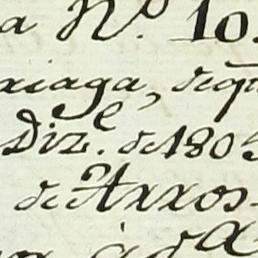 a N.º 10.
xiaga, de q
Diz.e de 1805
de Arros-